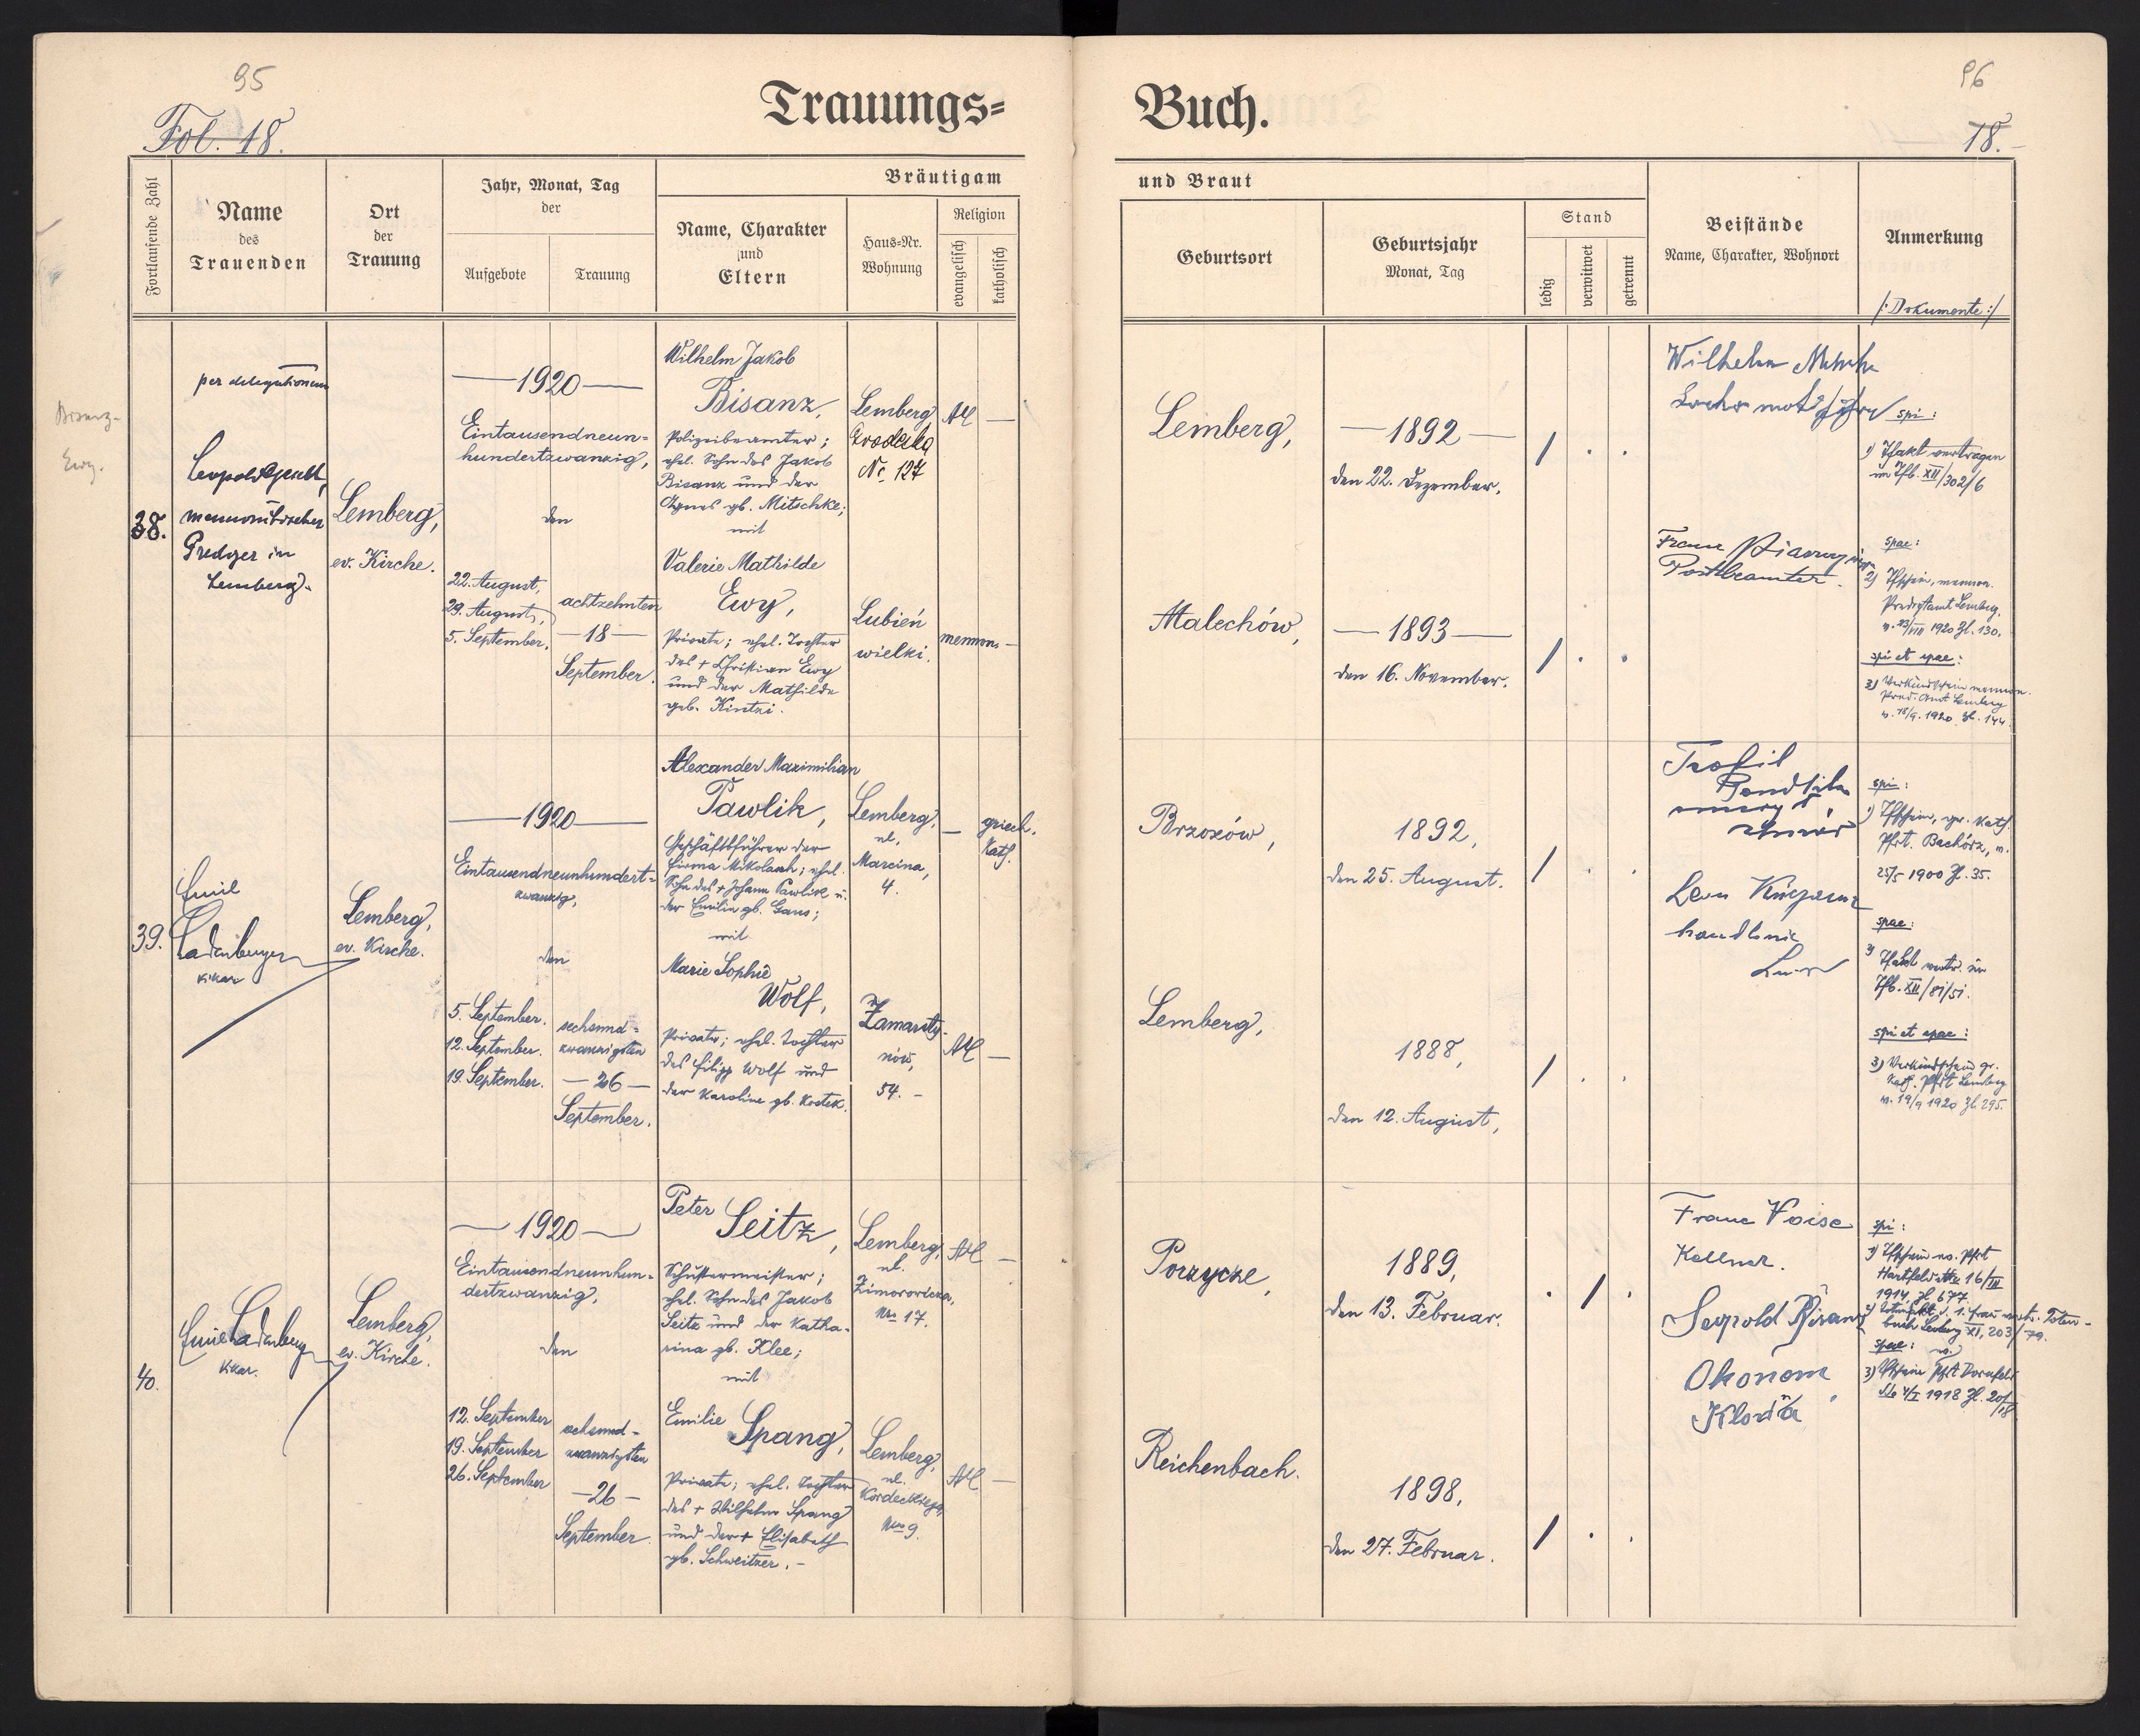 95
Fol. 18.
Trauungs=
Fortlaufende Zahl
Name
des
Trauenden
Ort
der
Trauung
Jahr, Monat, Tag
der
Aufgebote
Trauung
Bräutigam
Name, Charakter
und
Eltern
Haus=Nr.
Wohnung
Religion
evangelisch
katholisch
Bisanz-
Ewy.
38.
per delegationem
Leopold
mennonitischer
Prediger in
Lemberg.
Lemberg,
ev. Kirche.
1920
Eintausendneun=
hundertzwanzig,
den
22. August,
29. August,
5. September.
achtzehnten
18
September.
Wilhelm Jakob
Bisanz,
Polizeibeamter;
ehel. Sohn des Jakob
Bisanz und der
Agnes gb. Mitschke;
mit
Valerie Mathilde
Ewy,
Private; ehel. Tochter
des + Christian Ewy
und der Mathilde
geb. Kintzi.
Lemberg
Grodecka
No. 127
Lubień
wielki.
AC —
mennon —
39.
Emil
Ladenberger
Vikar
Lemberg,
ev. Kirche.
1920
Eintausendneunhundert=
zwanzig,
den
5. September.
12. September.
19. September.
sechsund=
zwanzigsten
26
September.
Alexander Maximilian
Pawlik,
Geschäftsführer der
Firma Mikolasch; ehel.
Sohn des + Johann Pawlik u.
der Emilie gb. Gans;
mit
Marie Sophie
Wolf,
Private; ehel. Tochter
des Filipp Wolf und
der Karoline gb. Kostek.
Lemberg,
ul.
Marcina,
4.
Zamarsty-
nów,
54. -
— griech.
kath.
AC —
40.
Emil Ladenberger
Vikar.
Lemberg,
ev. Kirche.
1920
Eintausendneunhun=
dertzwanzig,
den
12. September
19. September
26. September
sechsund=
zwanzigsten
26
September.
Peter Seitz,
Schustermeister;
ehel. Sohn des Jakob
Seitz und der Katha=
rina gb. Klee;
mit
Emilie Spang,
Private; ehel. Tochter
des + Wilhelm Spang
und der + Elisabeth
gb. Schweitzer. -
Lemberg,
ul.
Zimorowicza,
No 17.
Lemberg,
ul.
Kordeckiego,
No 9.
AC —
AC —
96
18.
Buch.
und Braut
Geburtsort
Geburtsjahr
Monat, Tag
Stand
ledig
verwitwet
getrennt
Beistände
Name, Charakter, Wohnort
Anmerkung
/: Dokumente :/
Lemberg,
1892
den 22. Dezember.
Malechów,
1893
den 16. November.
Wilhelm
Franz
Postbeamter.
spi:
1) Tfakt vertragen
im Tfb. XII/302/6
spae:
2) Tfschein, mennon.
Predigtamt Lemberg.
v. 23/VIII 1920 Zl. 130.
spi et spae:
3) Verkündschein mennon.
Pred. Amt Lemberg
v. 18/9. 1920. Zl. 144.
Brzozów,
1892,
den 25. August.
Lemberg,
1888,
den 12. August,
Teofil
Leon
handlowiec
spi:
1) Tfschein, gr. kath.
Pfrt. Bachórz, v.
25/5 1900 Zl. 35.
spae:
Tfakt vertr. im
Tfb. XII/81/51.
spi et spae:
3) Verkündschein gr.
kath. Pfrt Lemberg
v. 19/9 1920 Zl. 295.
Porzycze,
1889,
den 13. Februar.
Reichenbach.
1898,
den 27. Februar.
Franz
Kellner.
Leopold Bisanz
Ökonom
spi:
1) Tfschein ev. Pfrt
Hartfeld 16/III
1914, Zl. 677.
2) Totenakt d. 1. Frau vertr. Toten-
buch Lemberg XI, 203/79.
spae:
3) Tfschein Pfrt Dornfeld
1918 Zl. 201/18